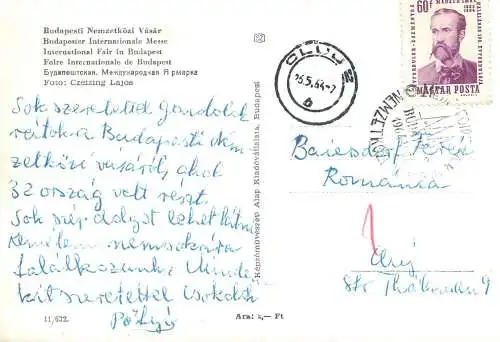 Budapesti Nemzetközi Vásár
Budapester Internationale Messe
International Fair in Budapest
Foire Internationale de Budapest
Будапештская Международная Ярмарка
Foto: Czeizing Lajos
Sok szeretettel gondolok
rátok a Budapesti Nem
zetközi vásáról, ahol
32 ország vett részt.
Sok szép dolgot lehet látni
Remélem nemsokára
találkozunk. Minden
kit szeretettel csókol
11/632.
Ára: 1,— Ft
Képzőművészeti Alap Kiadóvállalata, Budapest
CLUJ
25.5.64
60f
MAGYAR POSTA
NEMZETKÖZI
Ferenc
România
1
Cluj
str
9